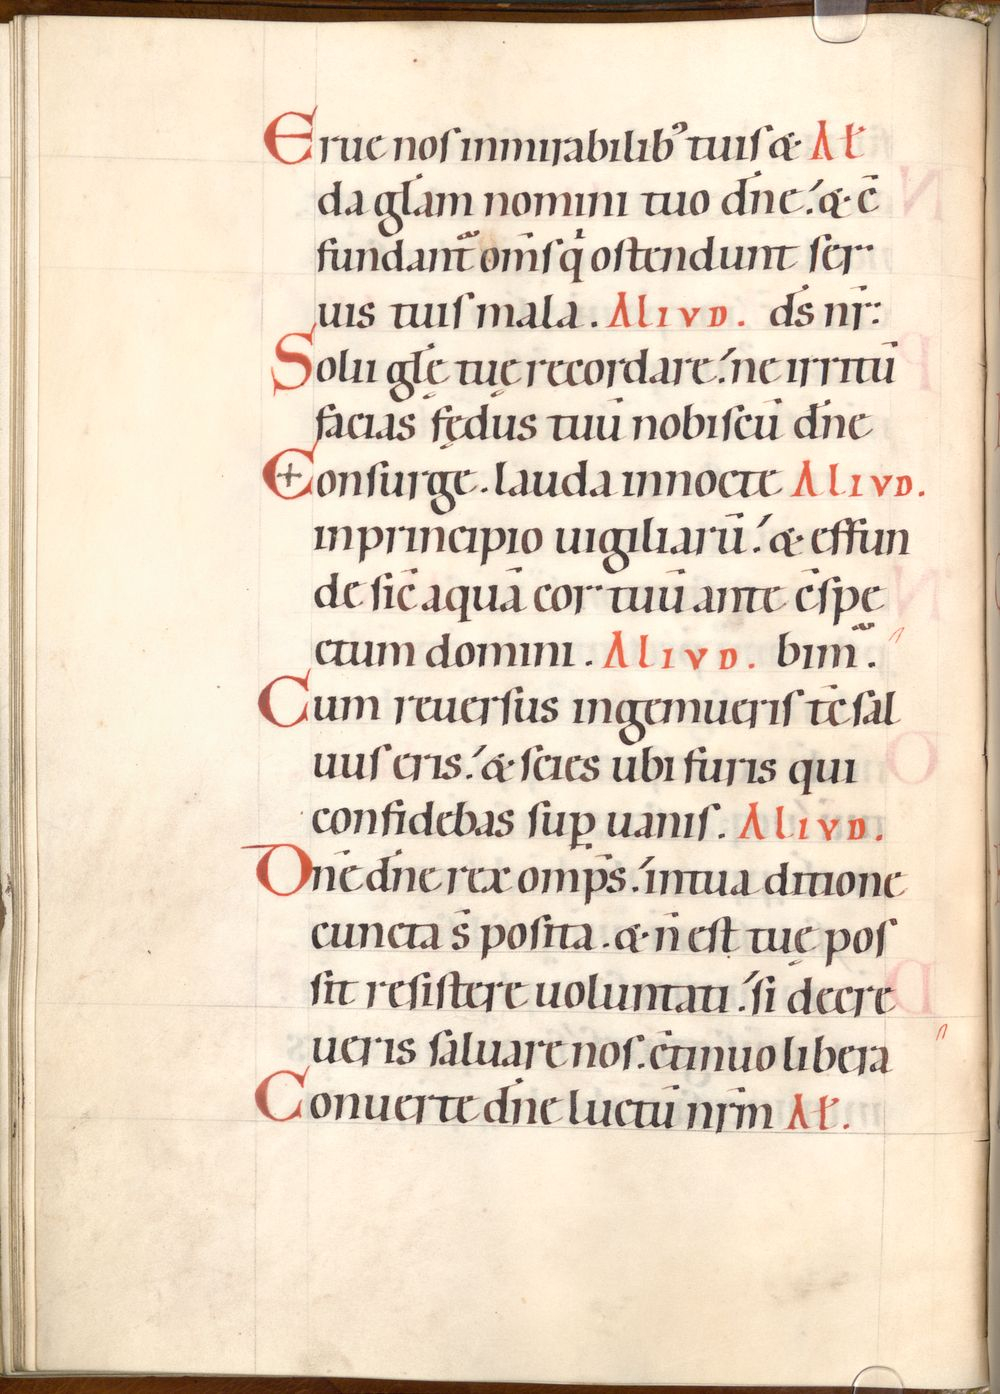 Erue nos inmirabilib᾽ tuis & Al̄
da gl̄am nomini tuo dn̄e. & c̄
fundant᷑ om̄s q̄ ostendunt ser
uis tuis mala. ALIVD. ds̄ nr̄:
Solii glę̄ tuę recordare. ne irritū
facias fędus tuū nobiscū dn̄e
Consurge. lauda innocte ALIVD.
inprincipio uigiliarū. & effun
de sic̄ aquā cor tuū ante c̄spe
ctum domini. ALIVD. bim̄.
Cum reuersus ingemueris tc̄ sal
uus eris. & scies ubi furis qui
confidebas suꝑ uanis. ALIVD.
Dn̄e dn̄e rex omp̄s. intua ditione
cuncta s̄ posita. & n̄ est tuę pos
sit resistere uoluntati. si decre
ueris saluare nos. c̄tinuo libera
Conuerte dn̄e luctū nr̄m Al̄.